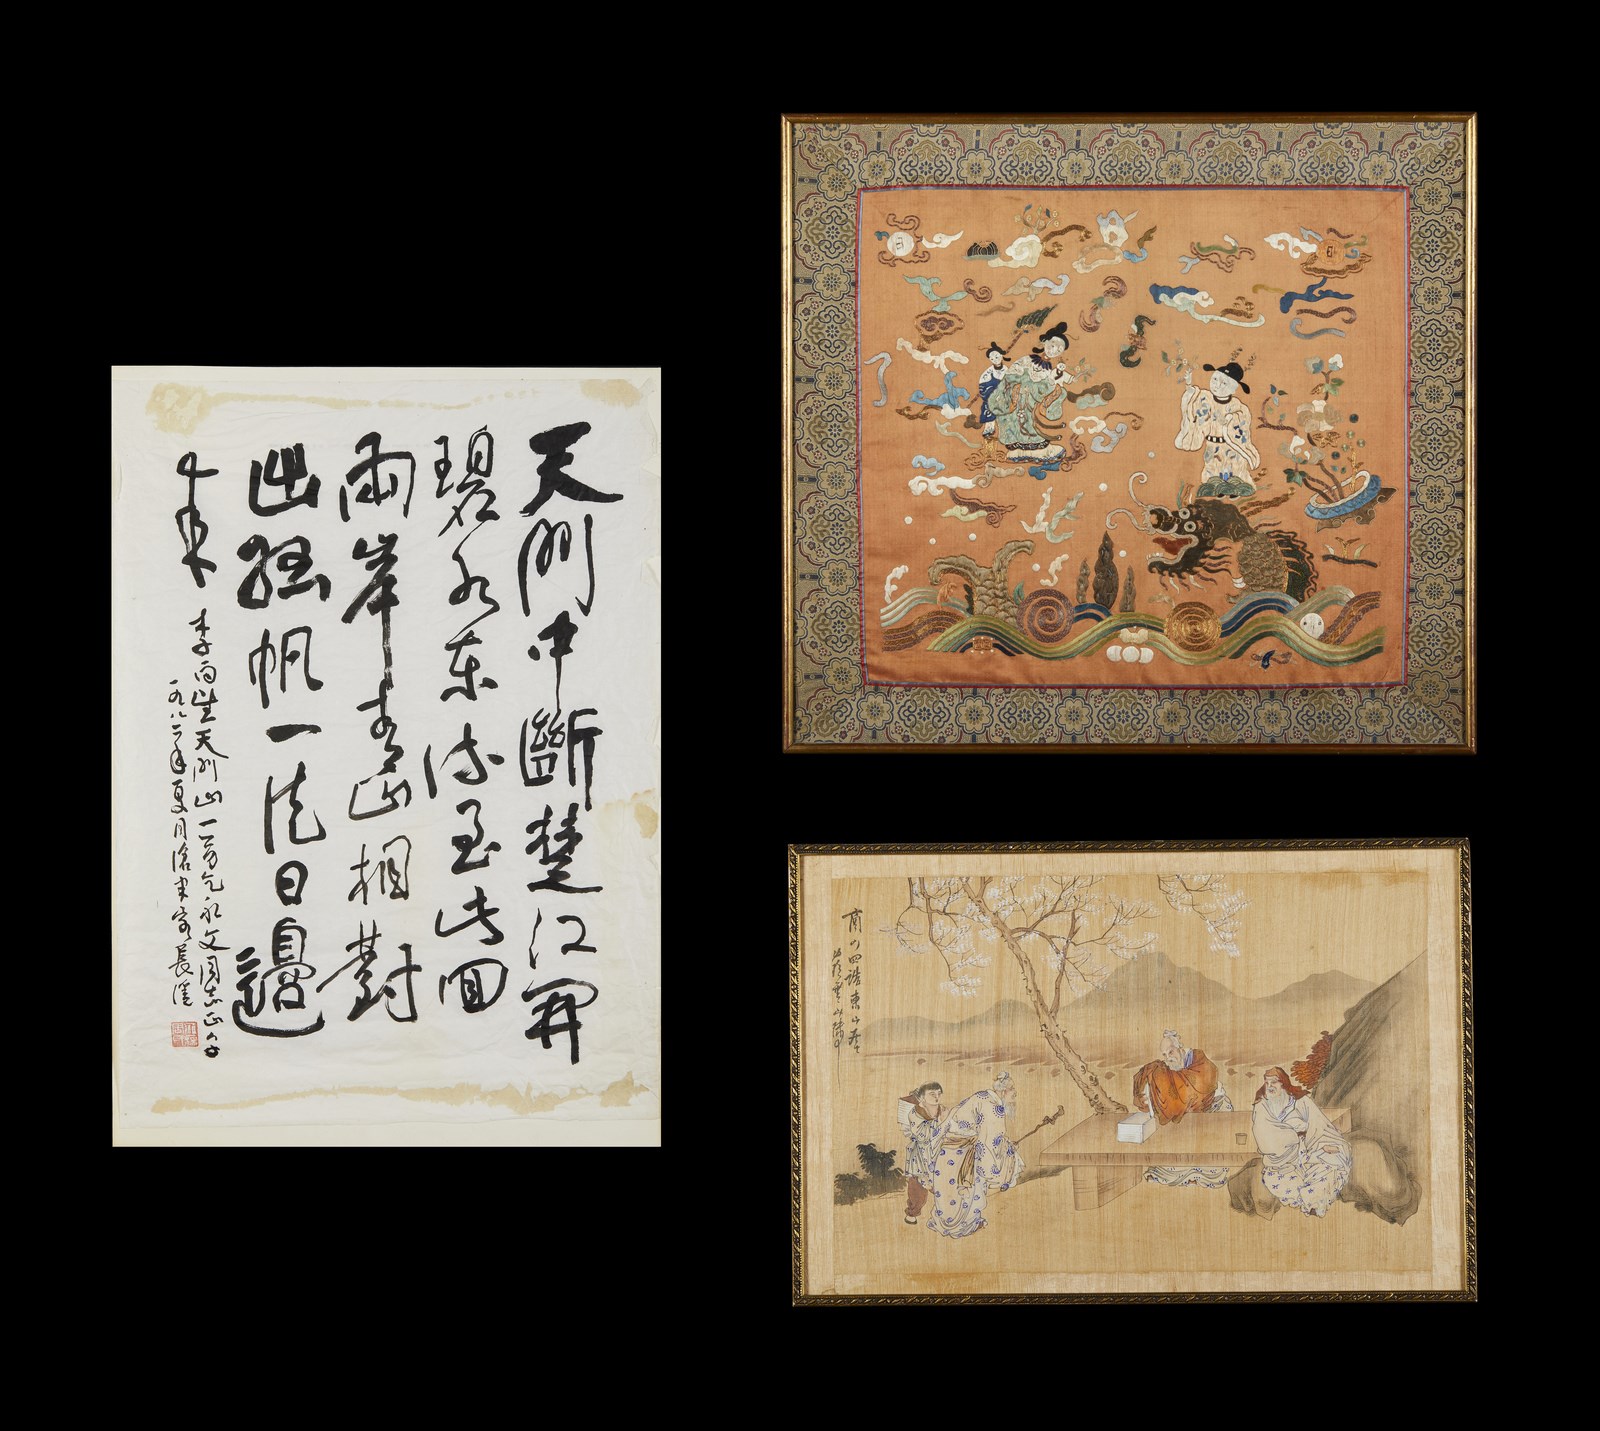 天門中斷楚江開
碧水東流至此回
兩岸青山相對
出孤帆一片日邊
来
李白望天門山一首乞永文同志正
一九八二年夏月
商山四皓東山